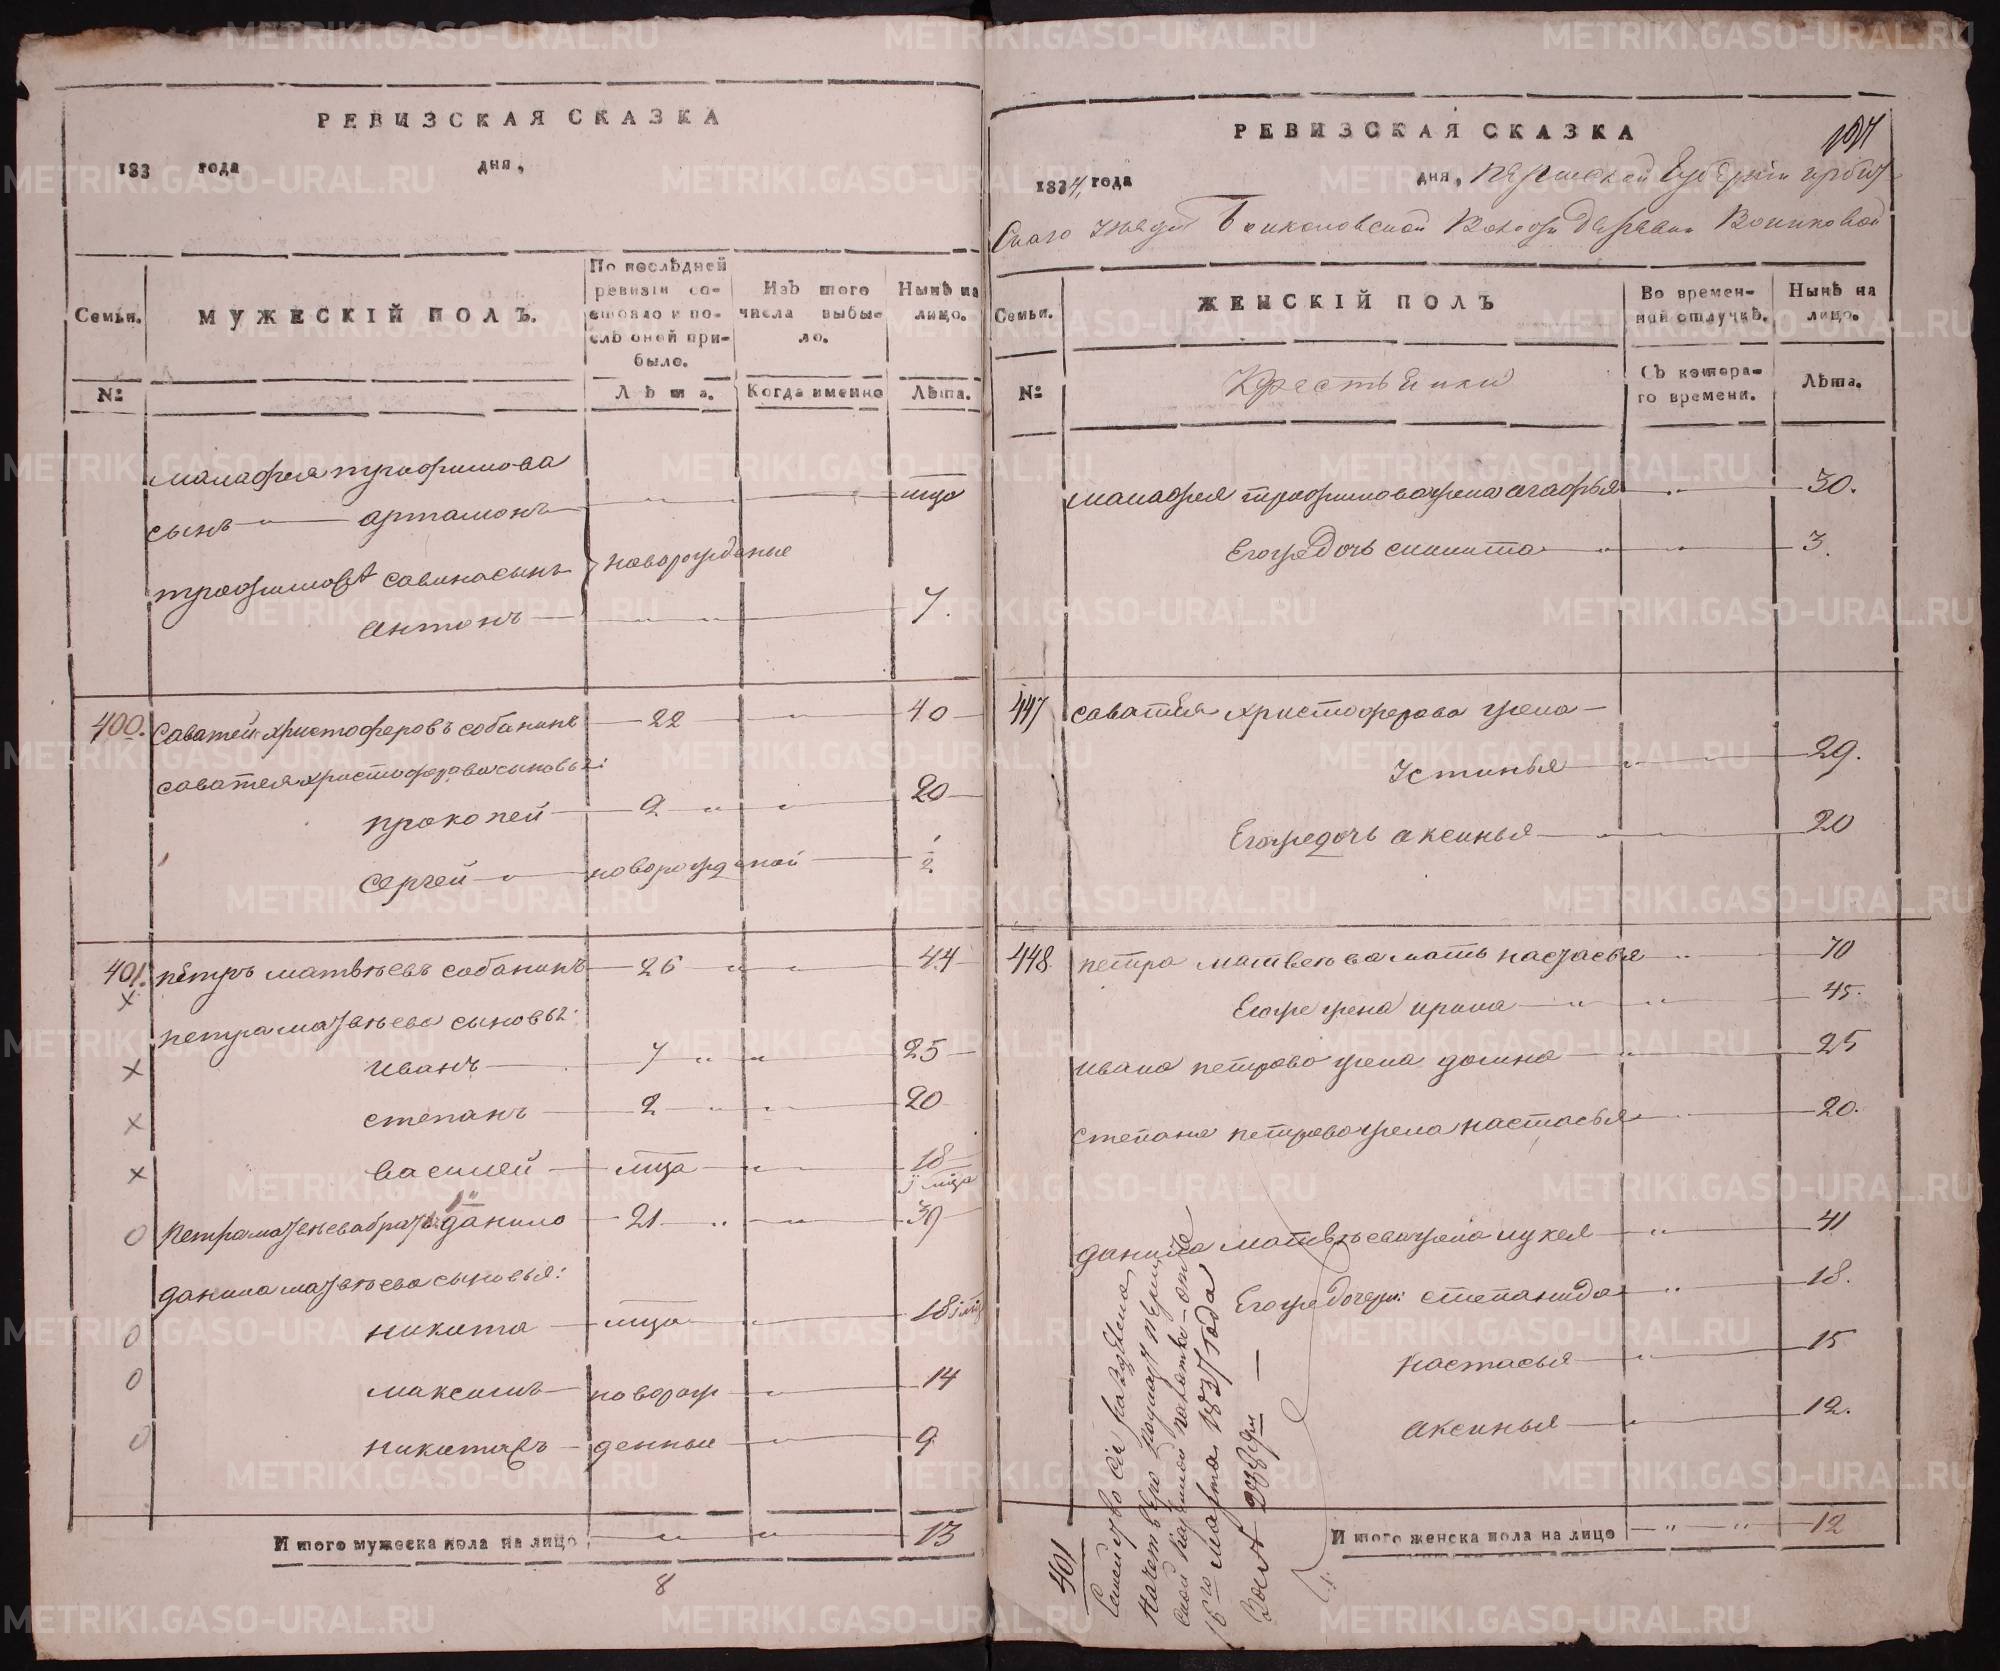 РЕВИЗСКАЯ СКАЗКА
183 года дня,
Семьи. МУЖЕСКІЙ ПОЛЪ. По послѣдней ревизіи состояло и послѣ оной прибыло. Изъ того числа выбыло. Нынѣ на лицо.
№ Лѣта. Когда именно Лѣта.
малафея трофимова
сынъ артамонъ мца
трофимова савина сынъ новорожденые
антонъ 7.
400. Саватей христофоровъ собанинъ 22 40
саватея христофорова сыновья:
прокопей 9 20
Сергей новорожденой 1/2
401. пётръ матвѣевъ собанинъ 26 44
петра матвѣева сыновья:
иванъ 7 25
степанъ 2 20
василей мца 18 мца
Петра матвѣева братъ 1й данило 21 39
данила матвѣева сыновья:
никита мца 18
максимъ новорож 14
никита 2й денные 9
И того мужеска пола на лицо 13
8
РЕВИЗСКАЯ СКАЗКА
1834 года дня, Пермской Губерніи ирбит
скаго уезда волости деревни
Семьи. ЖЕНСКІЙ ПОЛЪ Во временной отлучкѣ. Нынѣ на лицо.
№ Крестьянки Съ котораго времени. Лѣта.
малафея трофимова жена агафья 30.
Егоже дочь 3.
447 саватея христофорова жена
Устинья 29.
Егоже дочь аксинья 20
448 петра матвеева мать настасья 70
Егоже жена ирина 45.
ивана петрова жена домна 25
степана петрова жена настасья 20.
данила матвѣева жена лукея 41
Егоже дочери: степанида 18.
настасья 15
аксинья 12.
И того женска пола на лицо 12
401
Семейство сіе раздѣлено
на четверо Пермс
ской казенной палаты от
16го марта 1837 года